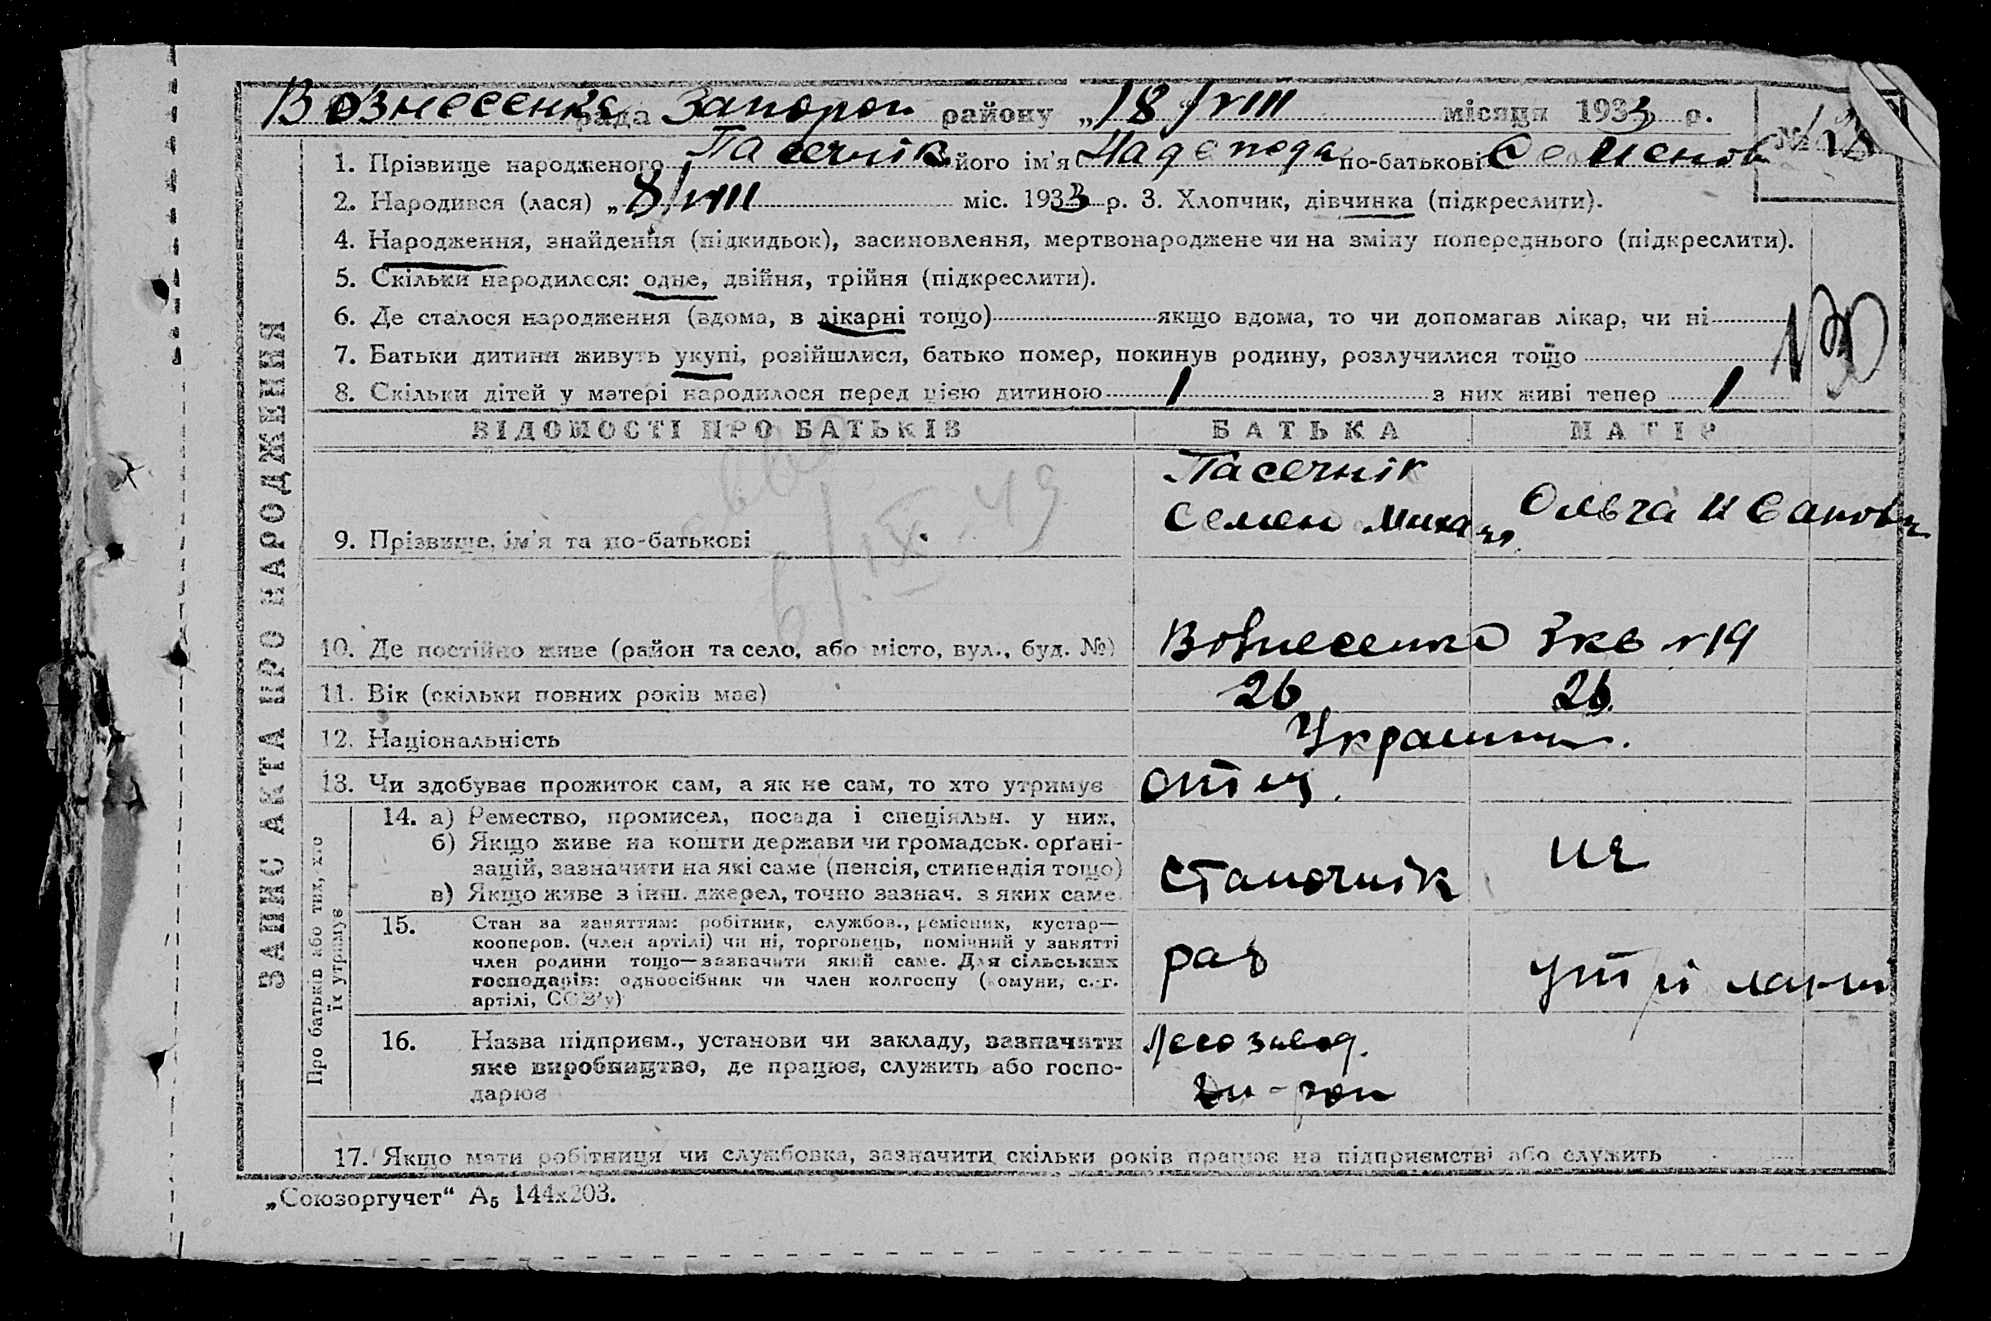 Вознесенка рада Запорож району „18/VIII місяця 1933 р.
№
1. Прізвище народженого Пасечнік його ім'я Надежда по-батькові Семенов
2. Народився (лася) „8/VIII міс. 1933 р. 3. Хлопчик, дівчинка (підкреслити).
4. Народження, знайдення (підкидьок), засиновлення, мертвонароджене чи на зміну попереднього (підкреслити).
5. Скільки народилося: одне, двійня, трійня (підкреслити).
6. Де сталося народження (вдома, в лікарні тощо) якщо вдома, то чи допомагав лікар, чи ні
7. Батьки дитини живуть укупі, розійшлися, батько помер, покинув родину, розлучилися тощо
130
8. Скільки дітей у матері народилося перед цією дитиною 1 з них живі тепер 1
ЗАПИС АКТА ПРО НАРОДЖЕННЯ
ВІДОМОСТІ ПРО БАТЬКІВ БАТЬКА МАТІР
9. Прізвище, ім'я та по-батькові
Пасечнік
Семен Миха
Ольга Иванов
6/IX-49
10. Де постійно живе (район та село, або місто, вул., буд. №) Вознесенка 3 кв №19
11. Вік (скільки повних років має) 26 26
12. Національність Украинц
13. Чи здобуває прожиток сам, а як не сам, то хто утримує отец
Про батьків або тих, хто їх утримує
14. а) Ремество, промисел, посада і спеціяльн. у них,
б) Якщо живе на кошти держави чи громадськ. орґані-
зацій, зазначити на які саме (пенсія, стипендія тощо)
в) Якщо живе з інш. джерел, точно зазнач. з яких саме.
Станочнік
не
15. Стан за заняттям: робітник, службов., ремісник, кустар—
кооперов. (член артілі) чи ні, торговець, помічний у занятті
член родини тощо—зазначити який саме. Для сільських
господарів: одноосібник чи член колгоспу (комуни, с.-г.
артілі, СОЗ'у)
раб
16. Назва підприєм., установи чи закладу, зазначити
яке виробництво, де працює, служить або госпо-
дарює
Лесозавод.
17. Якщо мати робітниця чи службовка, зазначити скільки років працює на підприємстві або служить
„Союзоргучет“ А5 144х203.